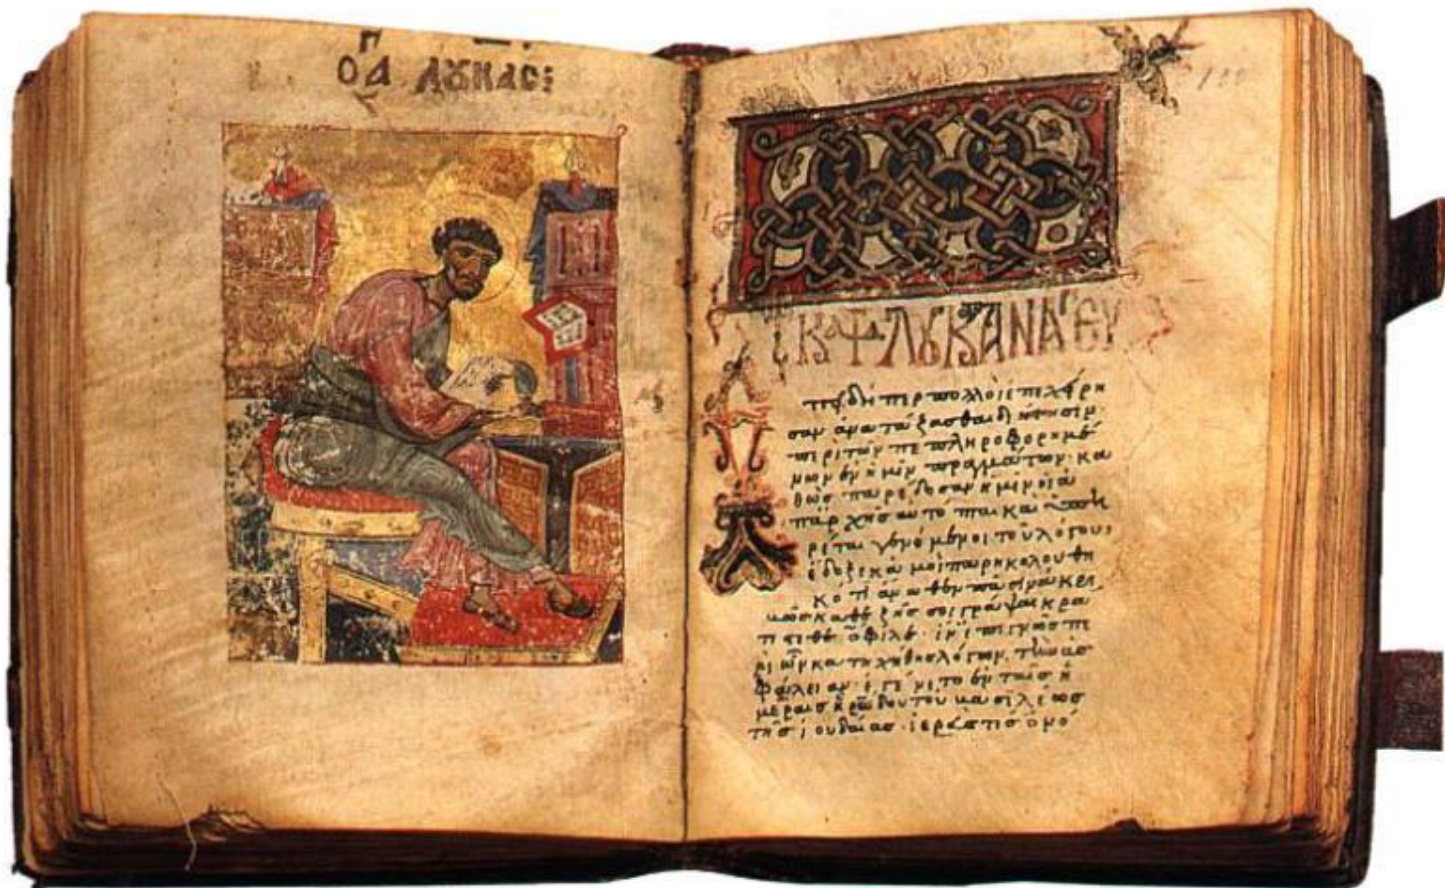 ΟΑ ΛȢΚΑϹ:
ΛȢΚΑΝ ΕΥ
πειδήπερ πολλοὶ ἐπεχείρη
σαν ἀνατάξασθαι διήγησιν
περὶ τῶν πεπληροφορημέ
νων ἐν ἡμῖν πραγμάτων· κα
θὼς παρέδοσαν ἡμῖν οἱ ἀ
πάρχῆς αὐτόπται καὶ ὑπη
ρέται γενόμενοι τοῦ λόγου·
ἔδοξε κἀμοὶ παρηκολουθη
κότι ἄνωθεν πᾶσιν ἀκρι
βῶς καθεξῆς σοι γράψαι κρά
τιστε θεόφιλε· ἵνα ἐπιγνῶς πε
ρὶ ὧν κατηχήθης λόγων, τὴν ἀσ
φάλειαν· ἐγένετο ἐν ταῖς ἡ
μέραις ἡρώδου τοῦ βασιλέως
τῆς ἰουδαίας· ἱερεύς τις ὀνό